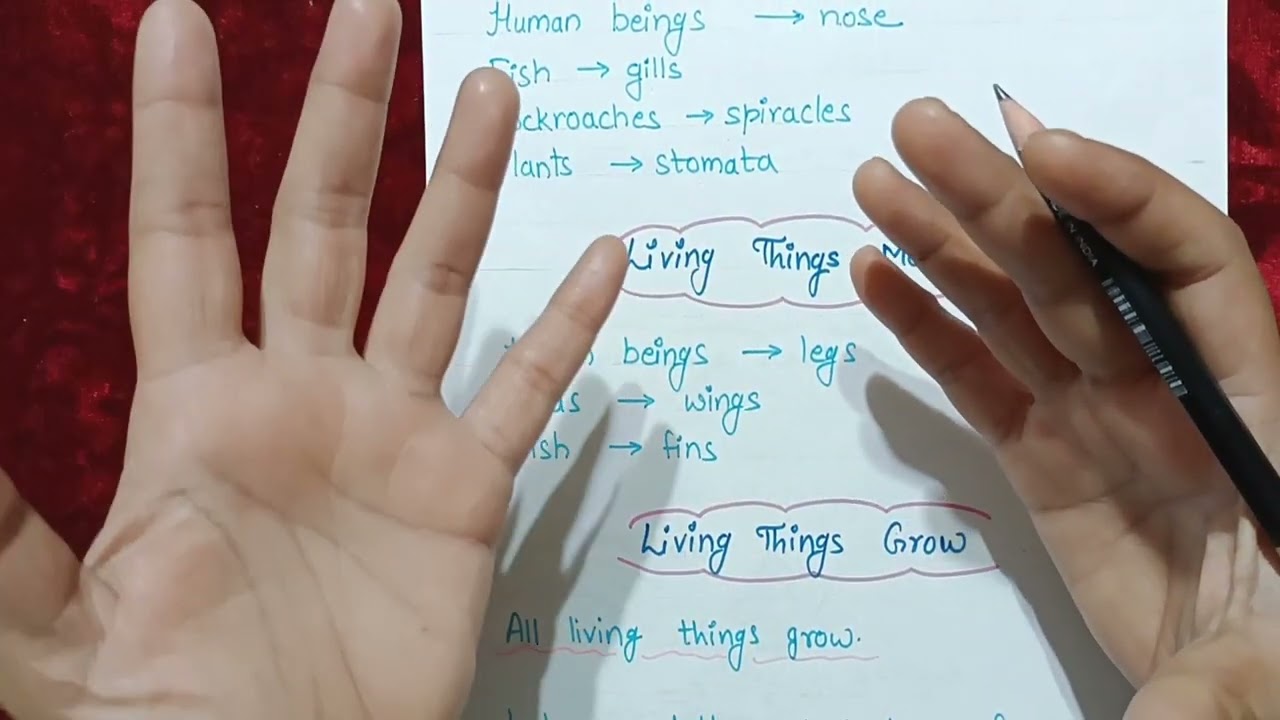 Human beings → nose
Fish → gills
ckroaches → spiracles
lants → stomata
Living Things
beings → legs
→ wings
ish → fins
Living Things Grow
All living things grow.
IN INDIA